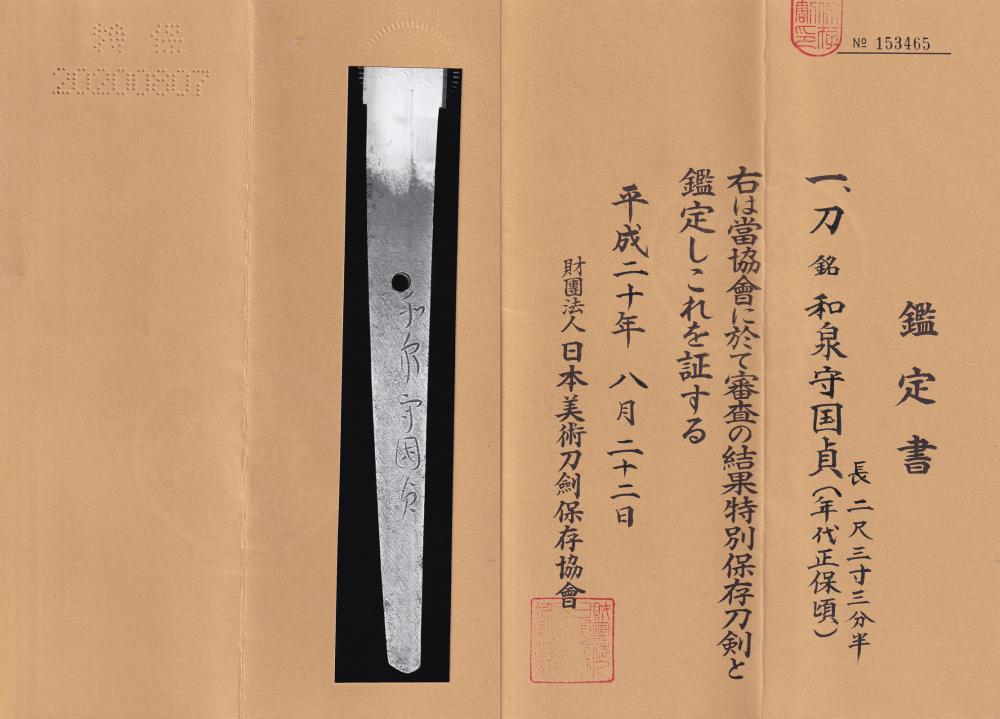 № 153465
鑑定書
一、刀 銘 和泉守国貞(年代正保頃)
長 二尺三寸三分半
右は當協會に於て審査の結果特別保存刀剣と
鑑定しこれを証する
平成二十年 八月 二十二日
財團法人 日本美術刀劍保存協會
和泉守国貞
特 保
20200807